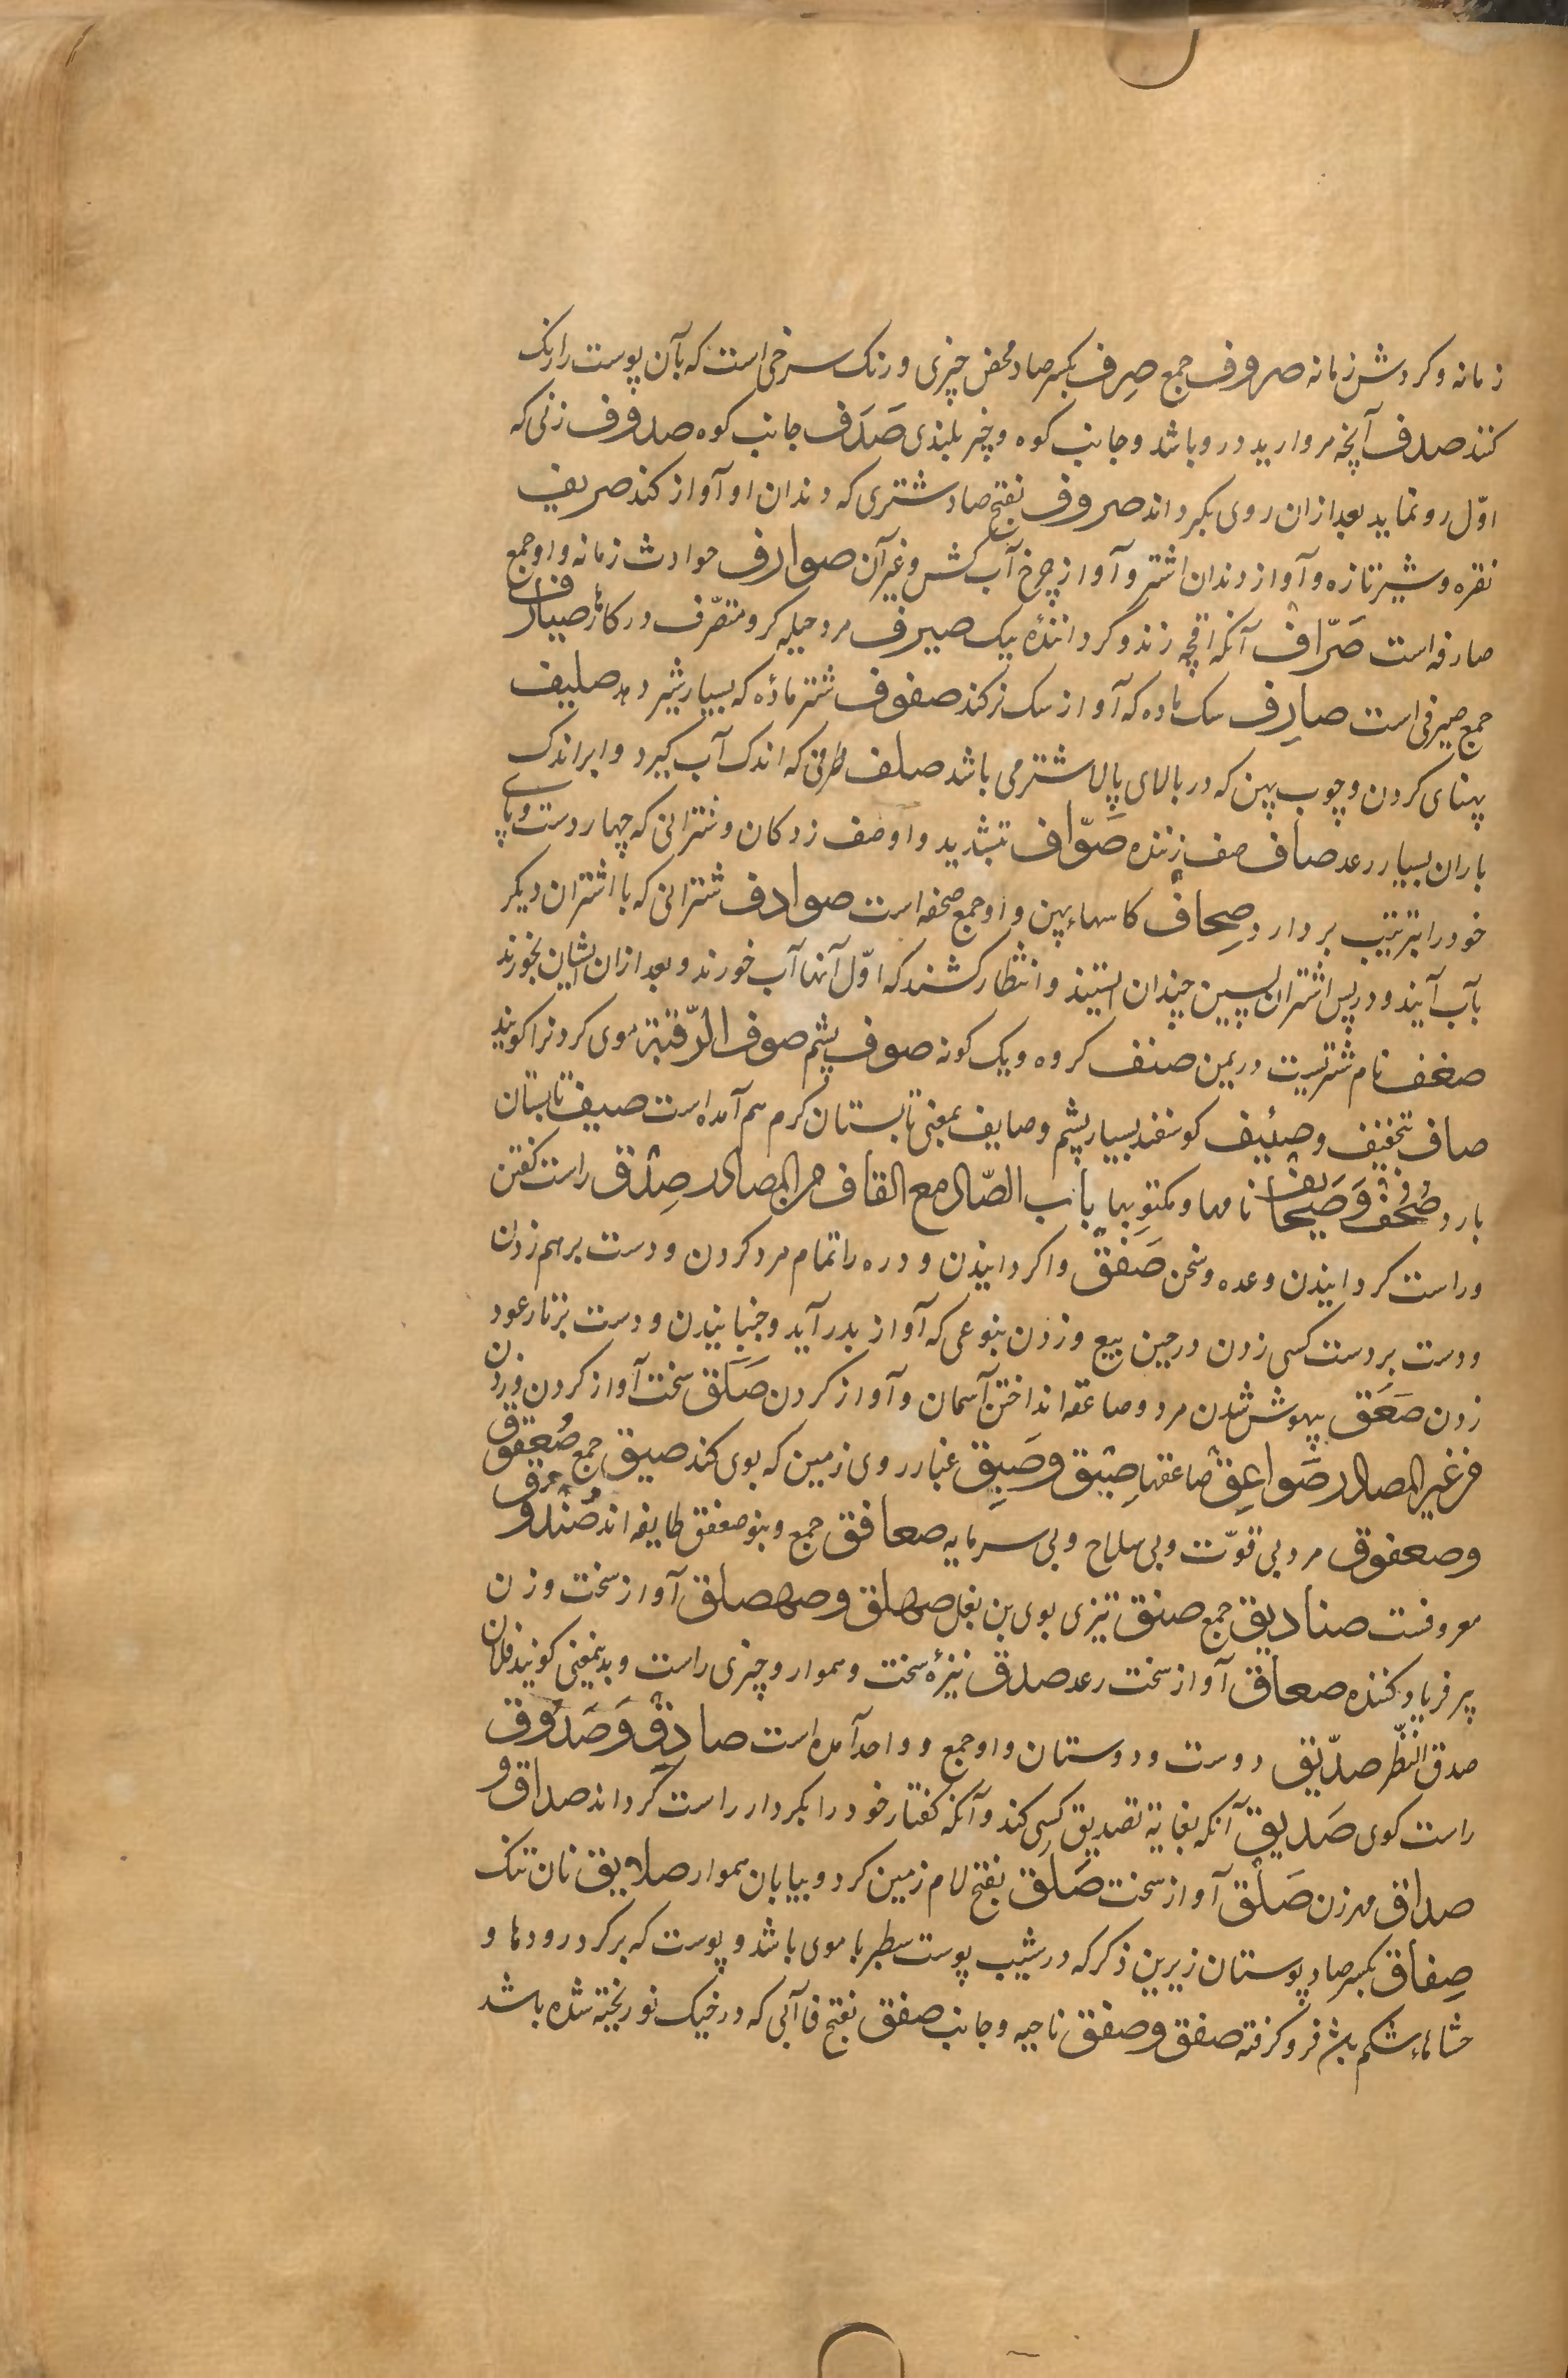 زمانه و کردش زمانه صروف جمع صِرف بکسر صاد محض چیزی و رنک سرخی است که بآن پوست را رنک
کنند صدف آنچه مروارید درو باشد و جانب کوه و چیز بلندی صَدَف جانب کوه صدوف زنی که
اوّل رو نماید بعد ازان روی بکرداند صروف بفتح صاد شتری که دندان او آواز کند صریف
نقره و شیر تازه و آواز دندان اشتر و آواز چرخ آب کش و غیر آن صوارف حوادث زمانه و او جمع
صارفه است صَرّاف آنکه اقچه زند و گرداننده یک صیرف مرد حیله کر و متصرّف در کارها صیارف
جمع صیرفی است صارِف سک ماده که آواز سک نر کند صفوف شتر ماده که بسیار شیر دهد صلیف
پهنای کردن و چوب پهن که در بالای پالان شتر می باشد صلف ظرفی که اندک آب کیرد و ابر اندک
باران بسیار رعد صاف صف زننده صَوّاف بتشدید و او صف زدکان و شترانی که چهار دست و پای
خود را بترتیب بردارد صِحاف کاسهاء پهن و او جمع صحفه است صوادف شترانی که با اشتران دیکر
بآب آیند و در پس اشتران پسین چندان ایستند و انتظار کشند که اوّل آنها آب خورند و بعد ازان ایشان بخورند
صغف نام شتریست در یمن صنف کروه و یک کونه صوف پشم صوف الرّقبة موی کردنرا کویند
صاف بتخفیف و صئیف کوسفند بسیار پشم و صایف بمعنی تابستان کرم هم آمده است صیف تابستان
بارد صُحُف و صَحایف نامها و مکتوبها باب الصّاد مع القاف من المصادر صِدق راست کفتن
و راست کردانیدن وعده و سخن صَفق واکردانیدن و دره را تمام مرد کردن و دست بر هم زدن
و دست بر دست کسی زدن در حین بیع و زدن بنوعی که آواز بدر آید و جنبانیدن و دست بر تار عود
زدن صَعَق بیهوش شدن مرد و صاعقه انداختن آسمان و آواز کردن صَلق سخت آواز کردن و زدن
من غیر المصادر صَواعِق صاعقها صِیَق و صَیِق غبار روی زمین که بوی کند صیق جمع صُعفق
و صعفوق مرد بی قوّت و بی سلاح و بی سرمایه صعافق جمع و بنو صعفق طایفه اند صُندوق
معروفست صنادیق جمع صنق تیزی بوی بن بغل صهلق و صهصلق آواز سخت و زن
پر فریاد کننده صعاق آواز سخت رعد صدق نیزهٔ سخت و هموار و چیزی راست و بدینمعنی کویند فلان
صدق النّظر صدّیق دوست و دوستان و او جمع و واحد آمده است صادِق و صَدُوق
راست کوی صَدیق آنکه بغایة تصدیق کسی کند و آنکه کفتار خود را بکردار راست کرداند صداق و
صداق مهر زن صَلق آواز سخت صَلَق بفتح لام زمین کرد و بیابان هموار صلایق نان تنک
صِفاق بکسر صاد پوستان زیرین ذکر که در شیب پوست سطبر با موی باشد و پوست که بر کرد رودها و
حشاهاء شکم باشد فرو کرفته صفق و صفق ناحیه و جانب صفق بفتح فا آبی که در خیک نو ریخته شده باشد